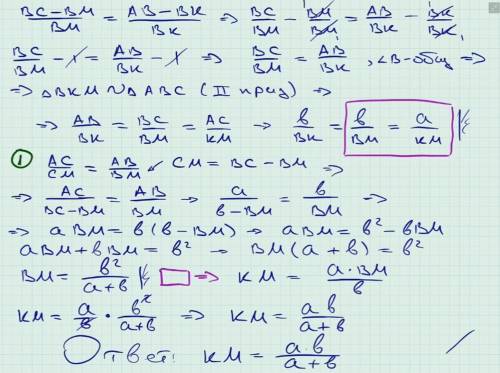 (BC-BM)/BM = (AB-BK)/BK ⇒ BC/BM - BM/BM = AB/BK - BK/BK
BC/BM - 1 = AB/BK - 1 ⇒ BC/BM = AB/BK, ∠B-общ ⇒
⇒ △BKM ∾ △ABC (II приз) ⇒
⇒ AB/BK = BC/BM = AC/KM → в/BK = в/BM = a/KM
① AC/CM = AB/BM ↙ CM = BC - BM ⇒
⇒ AC/(BC-BM) = AB/BM → a/(в-BM) = в/BM ⇒
⇒ aBM = в(в-BM) → aBM = в² - вBM
aBM + вBM = в² → BM(a+в) = в²
BM = в²/(a+в) □ ⇒ KM = a·BM/в
KM = a/в · в²/(a+в) ⇒ KM = aв/(a+в)
Ответ: KM = a·в/(a+в)